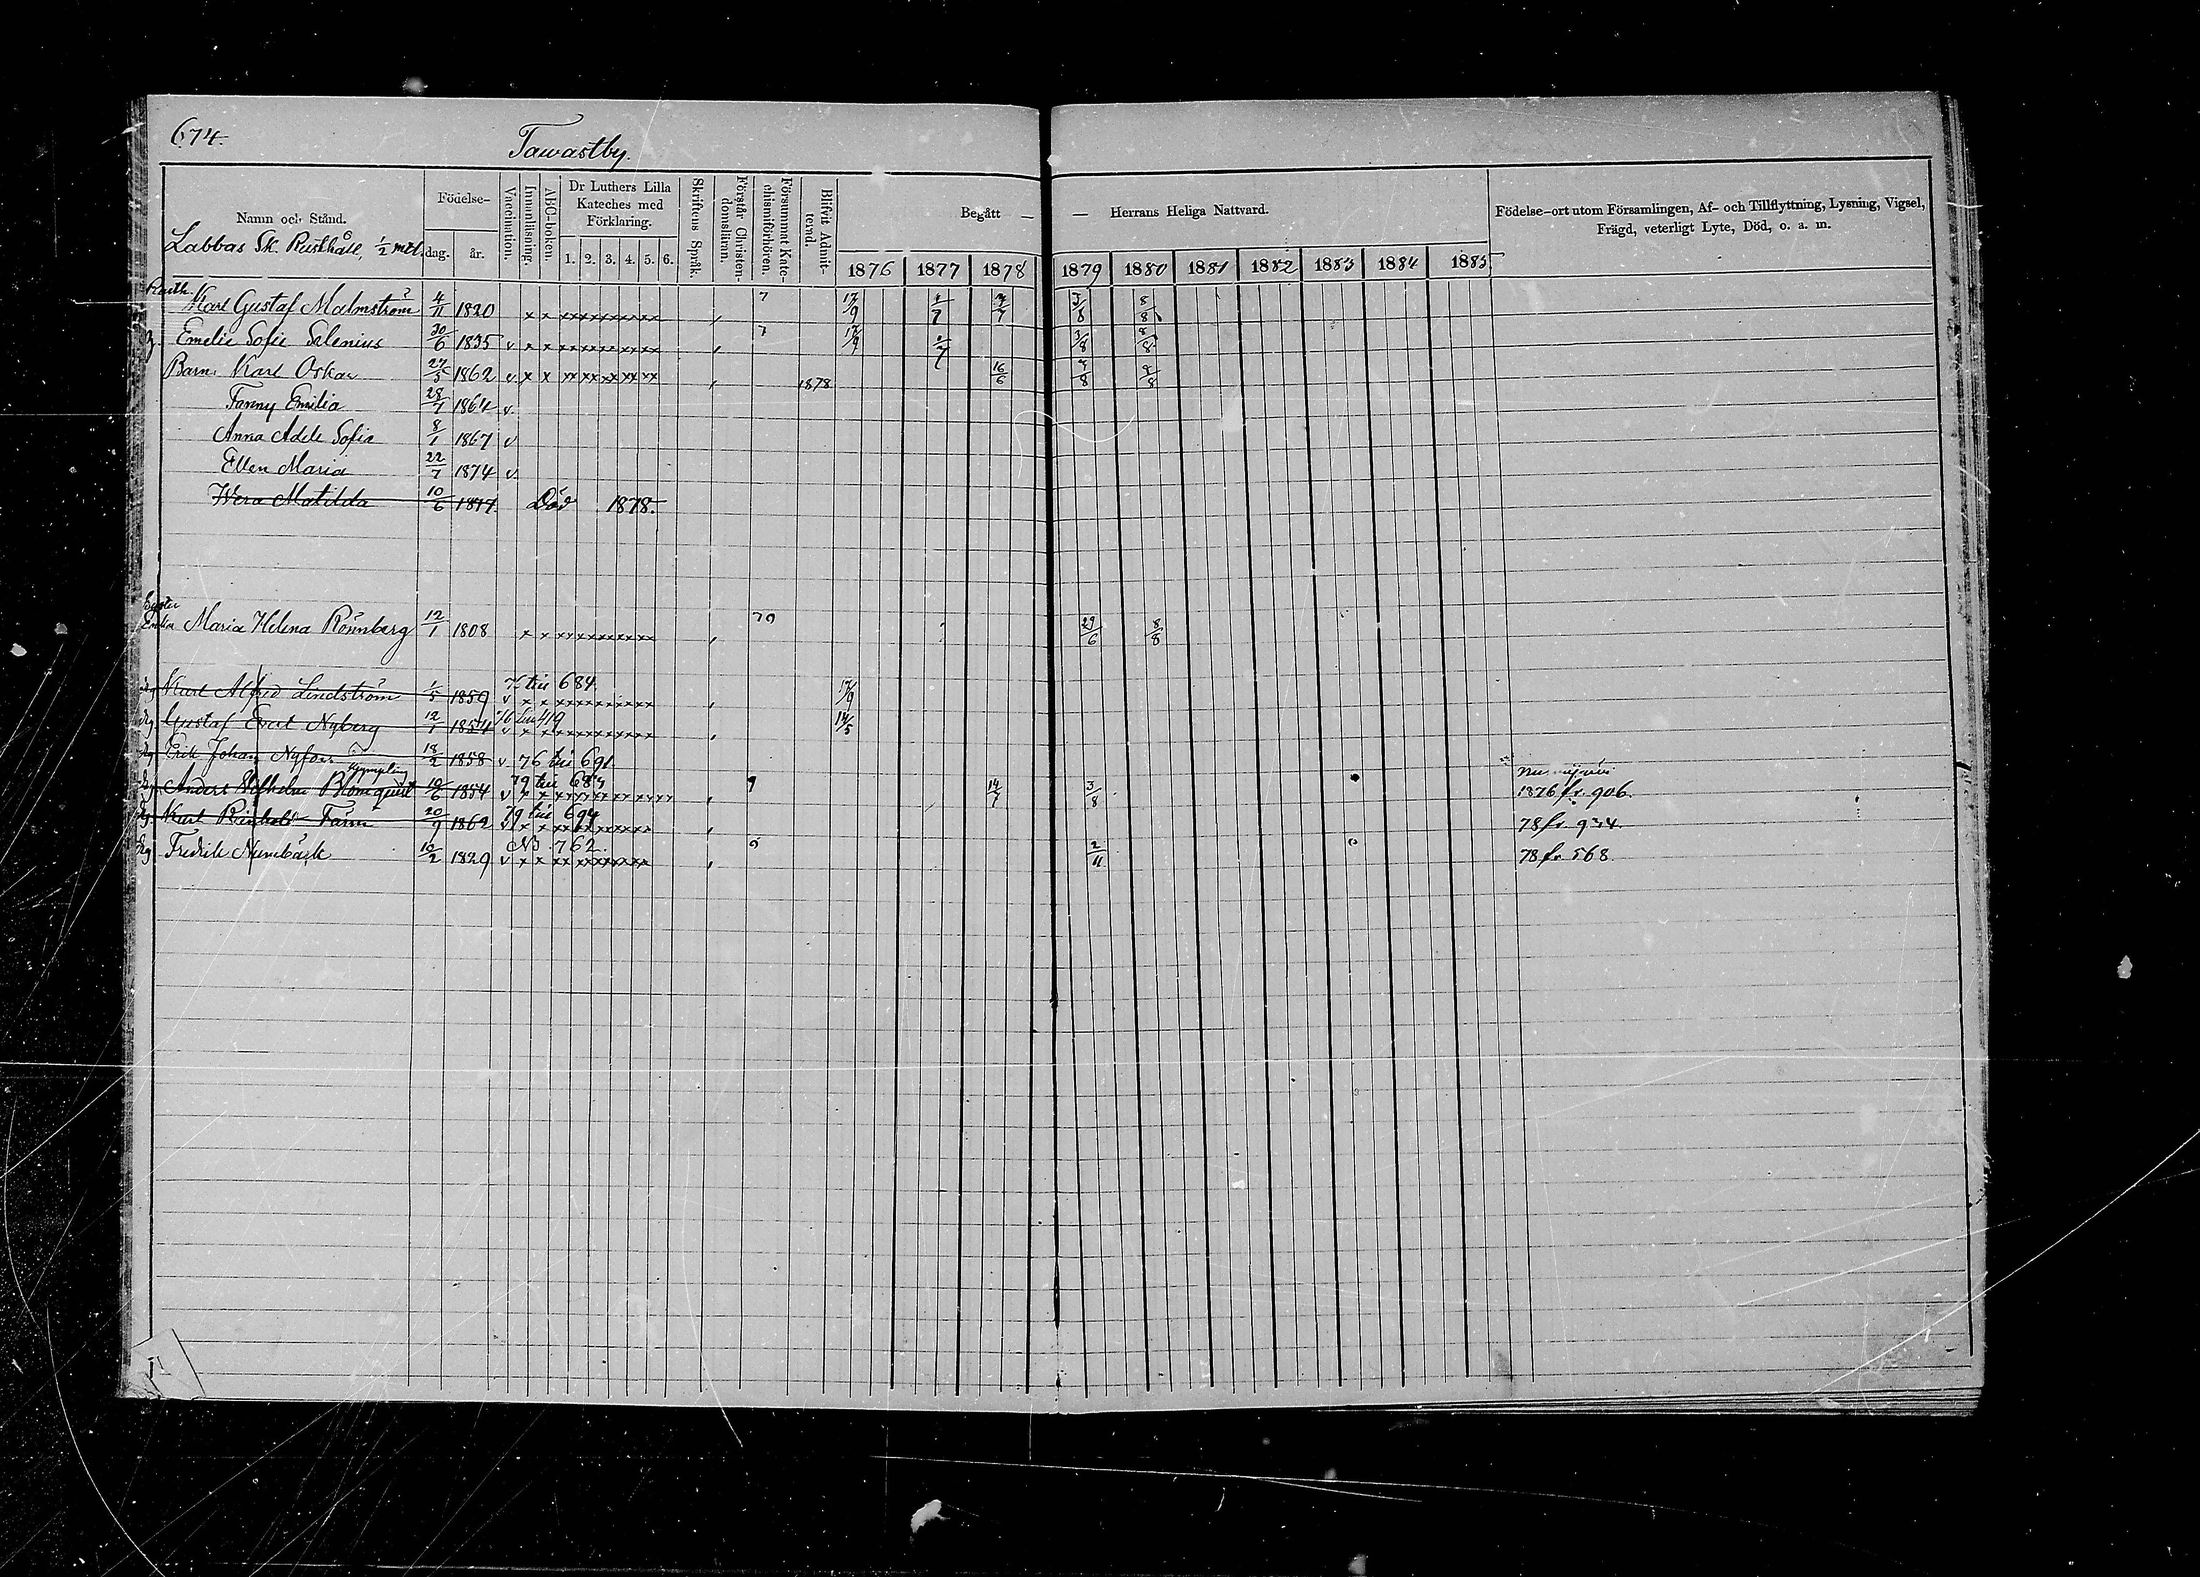 674.
Tawastby.
Namn och Stånd.
Labbas Sk. Rusthåll, 1/2 mtl.
Födelse-
dag. år.
Vaccination.
Innanläsning.
ABC-boken.
Dr Luthers Lilla
Kateches med
Förklaring.
1. 2. 3. 4. 5. 6.
Skriftens Språk.
Förstår Christen-
domslärnn.
Försummat Kate-
chismiförhören.
Blifvit Admit-
terad.
Begått — — Herrans Heliga Nattvard.
1876 1877 1878 1879 1880 1881 1882 1883 1884 1885
Födelse-ort utom Församlingen, Af- och Tillflyttning, Lysning, Vigsel,
Frägd, veterligt Lyte, Död, o. a. m.
Rusth.
Karl Gustaf Malmström 4/11 1820 x x xxxxxxxxxx 7 17/9 1/7 7/7 3/8 8/8
Emelie Sofie Selenius 30/6 1835 v x x xxxxxxxxxx 7 17/9 1/7 3/8 8/8
Barn: Karl Oskar 27/5 1862 v x x xxxxxxxxxx 1878 16/6 8/8
Fanny Emilia 28/7 1864 v
Anna Adele Sofia 8/1 1867 v
Ellen Maria 22/7 1874 v
Wera Matilda 10/6 1877 Död 1878.
Enka Maria Helena Rönnberg 12/1 1808 x x xxxxxxxxxx 79 29/6 8/8
Dg Karl Alfred Lindström 1/5 1859 till 684 v x x xxxxxxxxxx 17/9
Dg Gustaf Evert Nyberg 12/1 1854 76 till 419 v x x xxxxxxxxxx 14/5
Dg Erik Johan Nyfors 18/2 1858 v 76 till 691
Dg Anders Vilhelm Blomqvist 10/6 1854 79 till 684 v x x xxxxxxxxxxxx 9 14/7 3/8 1876 fr. 906.
Dg Karl Reinhold Farm 20/9 1862 79 till 694 v x x xxxxxxxxxx 78 fr. 934.
Dg Fredrik Numbäck 10/2 1829 NB 762. v x x xxxxxxxxxx 2/11 78 fr 568.